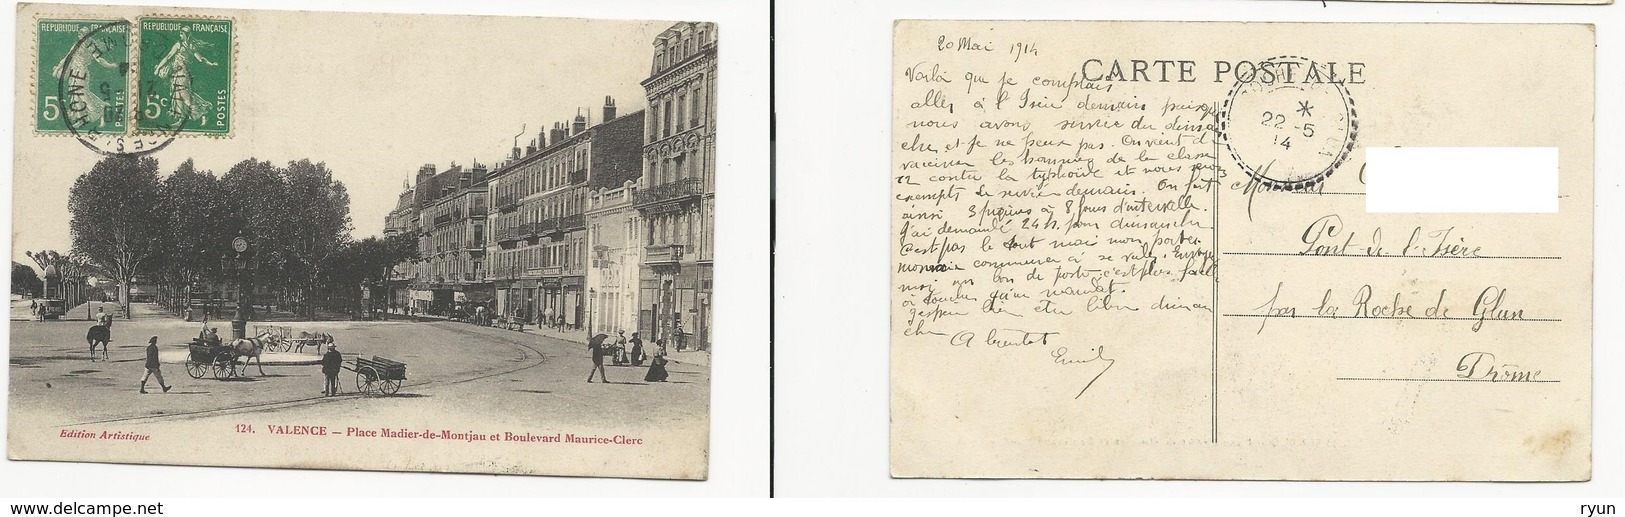 REPUBLIQUE FRANÇAISE
REPUBLIQUE FRANÇAISE
5
5c
POSTES
POSTES
RHONE
21 5
124. VALENCE — Place Madier-de-Montjau et Boulevard Maurice-Clerc
Edition Artistique
CARTE POSTALE
22 - 5
14
20 Mai 1914
Voilà que je comptais
aller à l'Isère demain puisque
nous avons service du diman
che et je ne peux pas. On vient de
vacciner les hommes de la classe
12 contre la typhoide et nous
exempts de service demain. On fait
ainsi 3 piqûres à 8 jours d'intervalle.
J'ai demandé 24 h. pour dimanche
c'est pas le tout mai mon porte
monnaie commence à se vider. Envoye
moi un bon de poste c'est plus facil
à toucher qu'un mandat.
J'espère être libre diman
che
A bientot
Emile
Monsieur
Pont de l'Isère
par la Roche de Glun
Drôme
www.delcampe.net
ryun